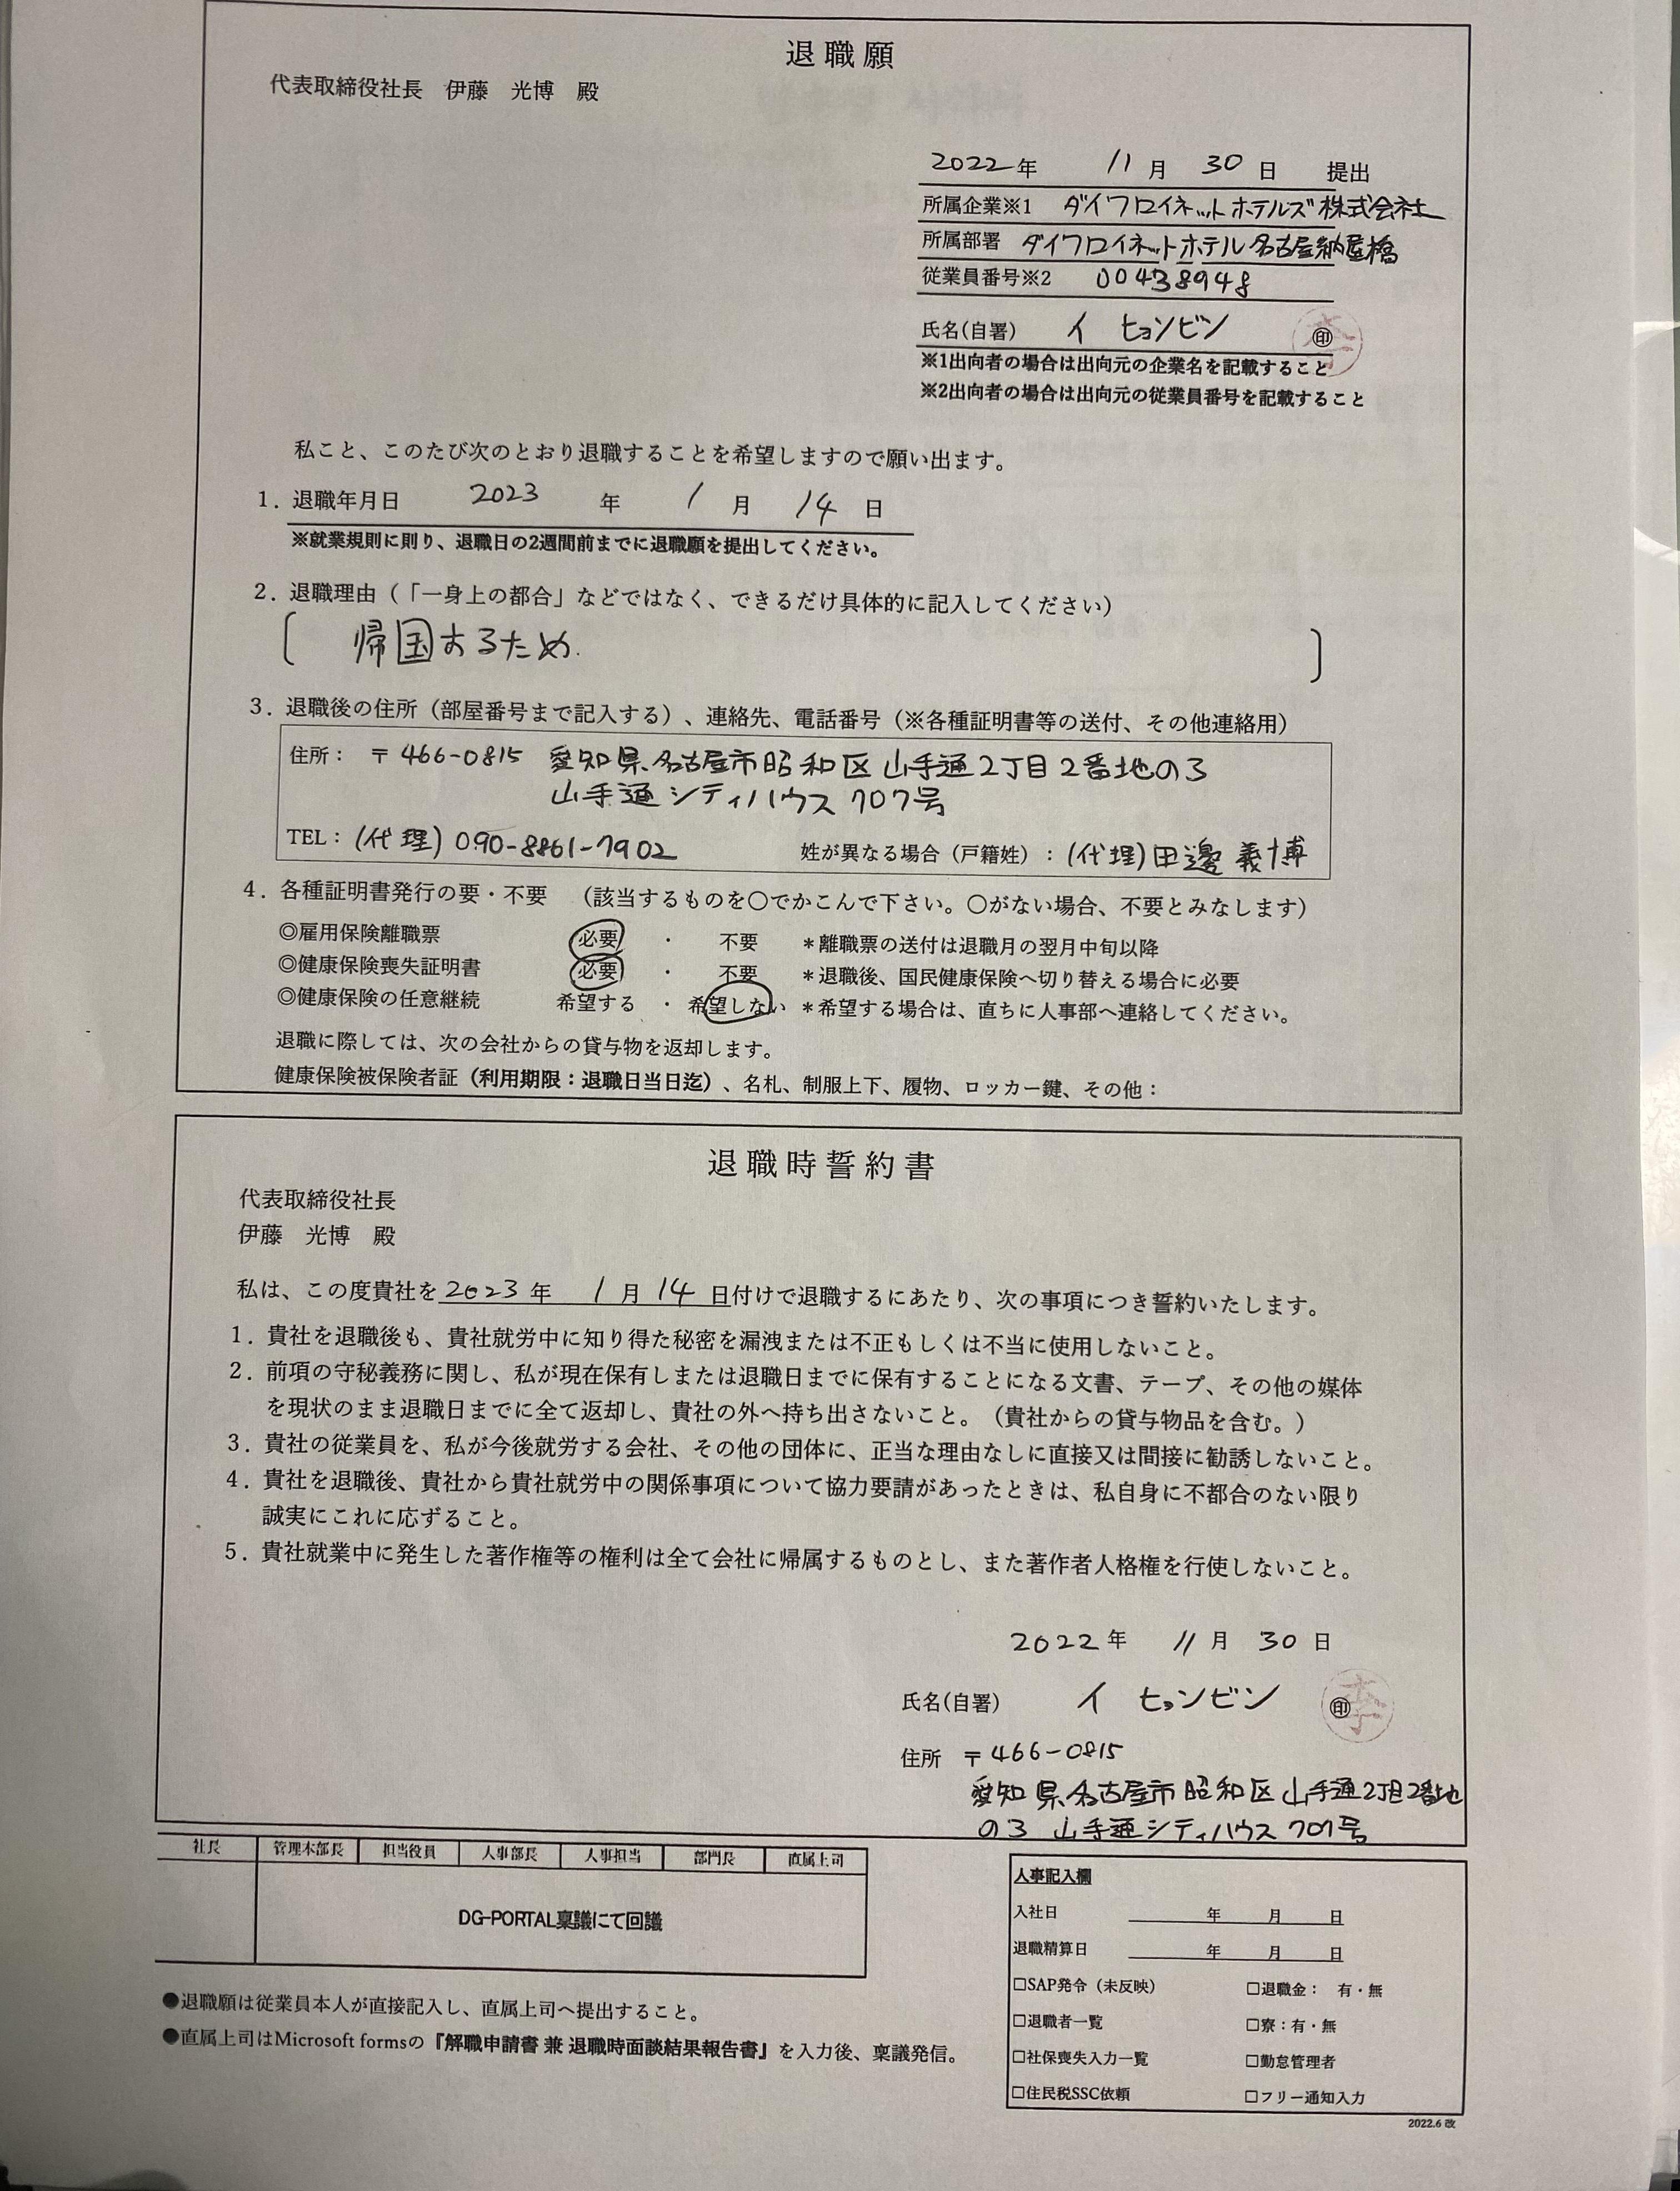 退職願
代表取締役社長　伊藤　光博　殿
2022年　11月　30日　提出
所属企業※1　ダイワロイネットホテルズ株式会社
所属部署　ダイワロイネットホテル名古屋納屋橋
従業員番号※2　00438948
氏名(自署)　イ　ヒョンビン　㊞ 李
※1出向者の場合は出向元の企業名を記載すること
※2出向者の場合は出向元の従業員番号を記載すること
私こと、このたび次のとおり退職することを希望しますので願い出ます。
1. 退職年月日　2023　年　1　月　14　日
※就業規則に則り、退職日の2週間前までに退職願を提出してください。
2. 退職理由（「一身上の都合」などではなく、できるだけ具体的に記入してください）
〔　帰国するため.　〕
3. 退職後の住所（部屋番号まで記入する）、連絡先、電話番号（※各種証明書等の送付、その他連絡用）
住所：　〒466-0815　愛知県名古屋市昭和区山手通2丁目2番地の3
山手通シティハウス 707号
TEL：(代理) 090-8861-7902　姓が異なる場合（戸籍姓）：(代理)田邊 義博
4. 各種証明書発行の要・不要　（該当するものを〇でかこんで下さい。〇がない場合、不要とみなします）
◎雇用保険離職票　必要　・　不要　＊離職票の送付は退職月の翌月中旬以降
◎健康保険喪失証明書　必要　・　不要　＊退職後、国民健康保険へ切り替える場合に必要
◎健康保険の任意継続　希望する　・　希望しない　＊希望する場合は、直ちに人事部へ連絡してください。
退職に際しては、次の会社からの貸与物を返却します。
健康保険被保険者証（利用期限：退職日当日迄）、名札、制服上下、履物、ロッカー鍵、その他：
退職時誓約書
代表取締役社長
伊藤　光博　殿
私は、この度貴社を2023年　1月　14日付けで退職するにあたり、次の事項につき誓約いたします。
1. 貴社を退職後も、貴社就労中に知り得た秘密を漏洩または不正もしくは不当に使用しないこと。
2. 前項の守秘義務に関し、私が現在保有しまたは退職日までに保有することになる文書、テープ、その他の媒体
を現状のまま退職日までに全て返却し、貴社の外へ持ち出さないこと。（貴社からの貸与物品を含む。）
3. 貴社の従業員を、私が今後就労する会社、その他の団体に、正当な理由なしに直接又は間接に勧誘しないこと。
4. 貴社を退職後、貴社から貴社就労中の関係事項について協力要請があったときは、私自身に不都合のない限り
誠実にこれに応ずること。
5. 貴社就業中に発生した著作権等の権利は全て会社に帰属するものとし、また著作者人格権を行使しないこと。
2022年　11月　30日
氏名(自署)　イ　ヒョンビン　㊞ 李
住所　〒466-0815
愛知県名古屋市昭和区山手通2丁目2番地
の3　山手通シティハウス 707号
社長　管理本部長　担当役員　人事部長　人事担当　部門長　直属上司
DG-PORTAL稟議にて回議
●退職願は従業員本人が直接記入し、直属上司へ提出すること。
●直属上司はMicrosoft formsの『解職申請書 兼 退職時面談結果報告書』を入力後、稟議発信。
人事記入欄
入社日　年　月　日
退職精算日　年　月　日
□SAP発令（未反映）　□退職金：　有・無
□退職者一覧　□寮：有・無
□社保喪失入力一覧　□勤怠管理者
□住民税SSC依頼　□フリー通知入力
2022.6 改